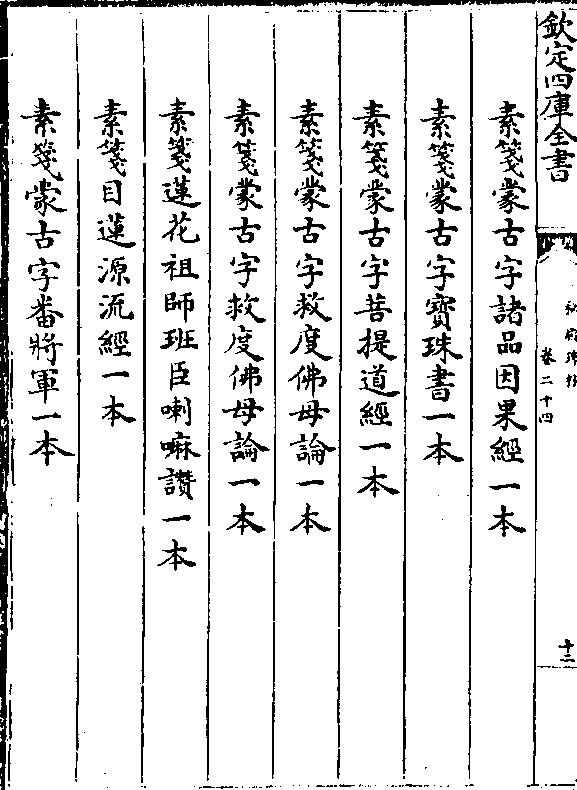 欽定四庫全書
秘殿珠林
卷二十四
十二
素箋蒙古字諸品因果經一本
素箋蒙古字寶珠書一本
素箋蒙古字菩提道經一本
素箋蒙古字救度佛母論一本
素箋蒙古字救度佛母論一本
素箋蓮花祖師班臣喇嘛讚一本
素箋目蓮源流經一本
素箋蒙古字番將軍一本